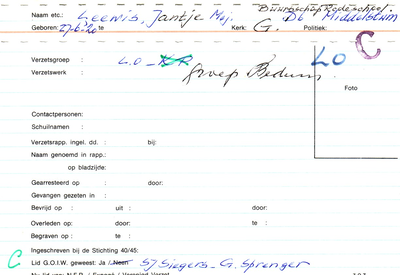 Buurtschap Rodeschool
Naam etc.: Leenis, Jantje Mej. D6 Middelstum
Geboren: 27-6-20 te Kerk: G. Politiek:
C
Verzetsgroep : L.O-KR LO
Verzetswerk : Groep Bedum
Foto
Contactpersonen:
Schuilnamen :
Verzetsrapp. ingel. dd. : bij:
Naam genoemd in rapp.:
op bladzijde:
Gearresteerd op : door:
Gevangen gezeten in :
Bevrijd op : uit : door:
Overleden op: door: te :
Begraven op : te :
Ingeschreven bij de Stichting 40/45:
C Lid G.O.I.W. geweest: Ja / Neen SJ Siegers - G. Sprenger